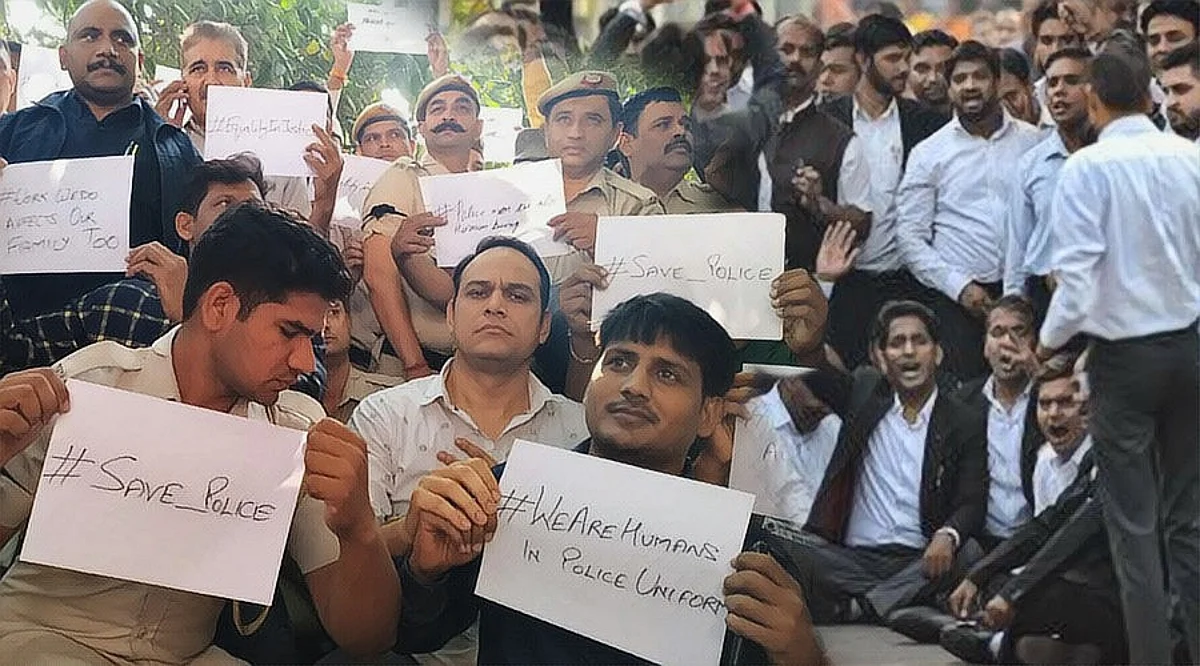 #EqualityInJustice
#WORK WEDO
AFFECTS OUR
FAMILY TOO
#Police men are also
Human being
#SAVE_POLICE
#SAVE_POLICE
#WEAREHUMANS
IN POLICE UNIFORM